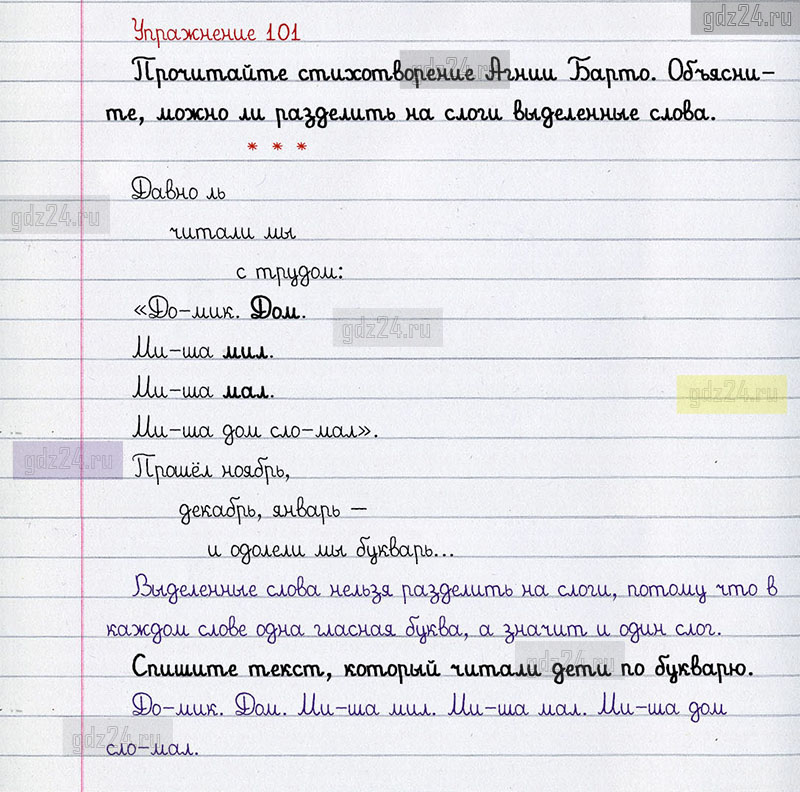 gdz24.ru
Упражнение 101
gdz24.ru
Прочитайте стихотворение Агнии Барто. Объясни-
те, можно ли разделить на слоги выделенные слова.
* * *
Давно ль
gdz24.ru
читали мы
с трудом:
«До-мик. Дом.
gdz24.ru
Ми-ша мил.
Ми-ша мал.
gdz24.ru
Ми-ша дом сло-мал».
gdz24.ru
Прошёл ноябрь,
декабрь, январь —
и одолели мы букварь...
Выделенные слова нельзя разделить на слоги, потому что в
каждом слове одна гласная буква, а значит и один слог.
gdz24.ru
Спишите текст, который читали дети по букварю.
До-мик. Дом. Ми-ша мил. Ми-ша мал. Ми-ша дом
gdz24.ru
сло-мал.